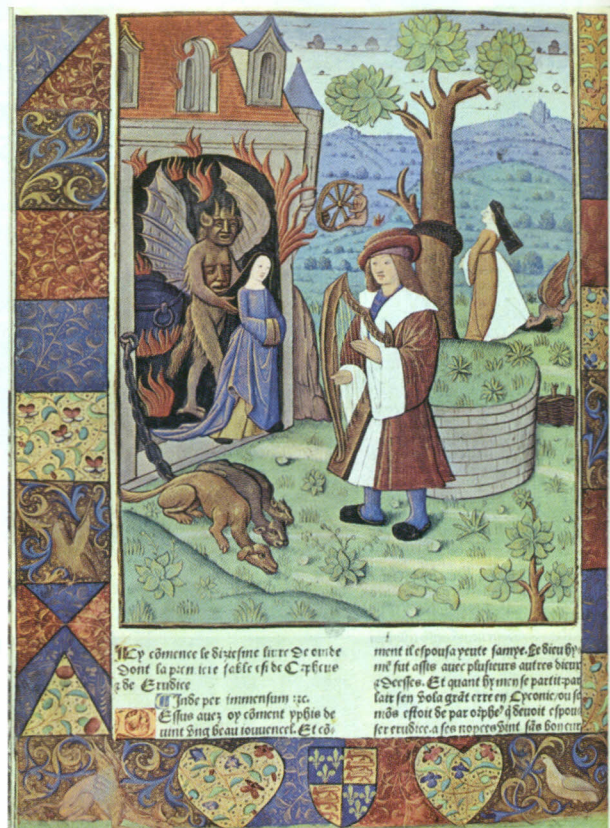 Cy cõmence le dixiesme liure de ouide
Dont la premiere fable est de Orpheus
⁊ de Erudice
Inde per immensum ⁊c.
Essus auez oy cõment yphis de
uint vng beau iouuencel. Et cõ
ment il espousa yente sampe. Le dieu hy
me fut assis auec plusieurs autres dieux
⁊ deesses. Et quant hymen se partit par
lair sen vola grãt erre en Cyconie, ou sa
mõs estoit de par orphe⁹ q̃ deuoit espou
ser erudice. a ses nopces vint sãs boneur